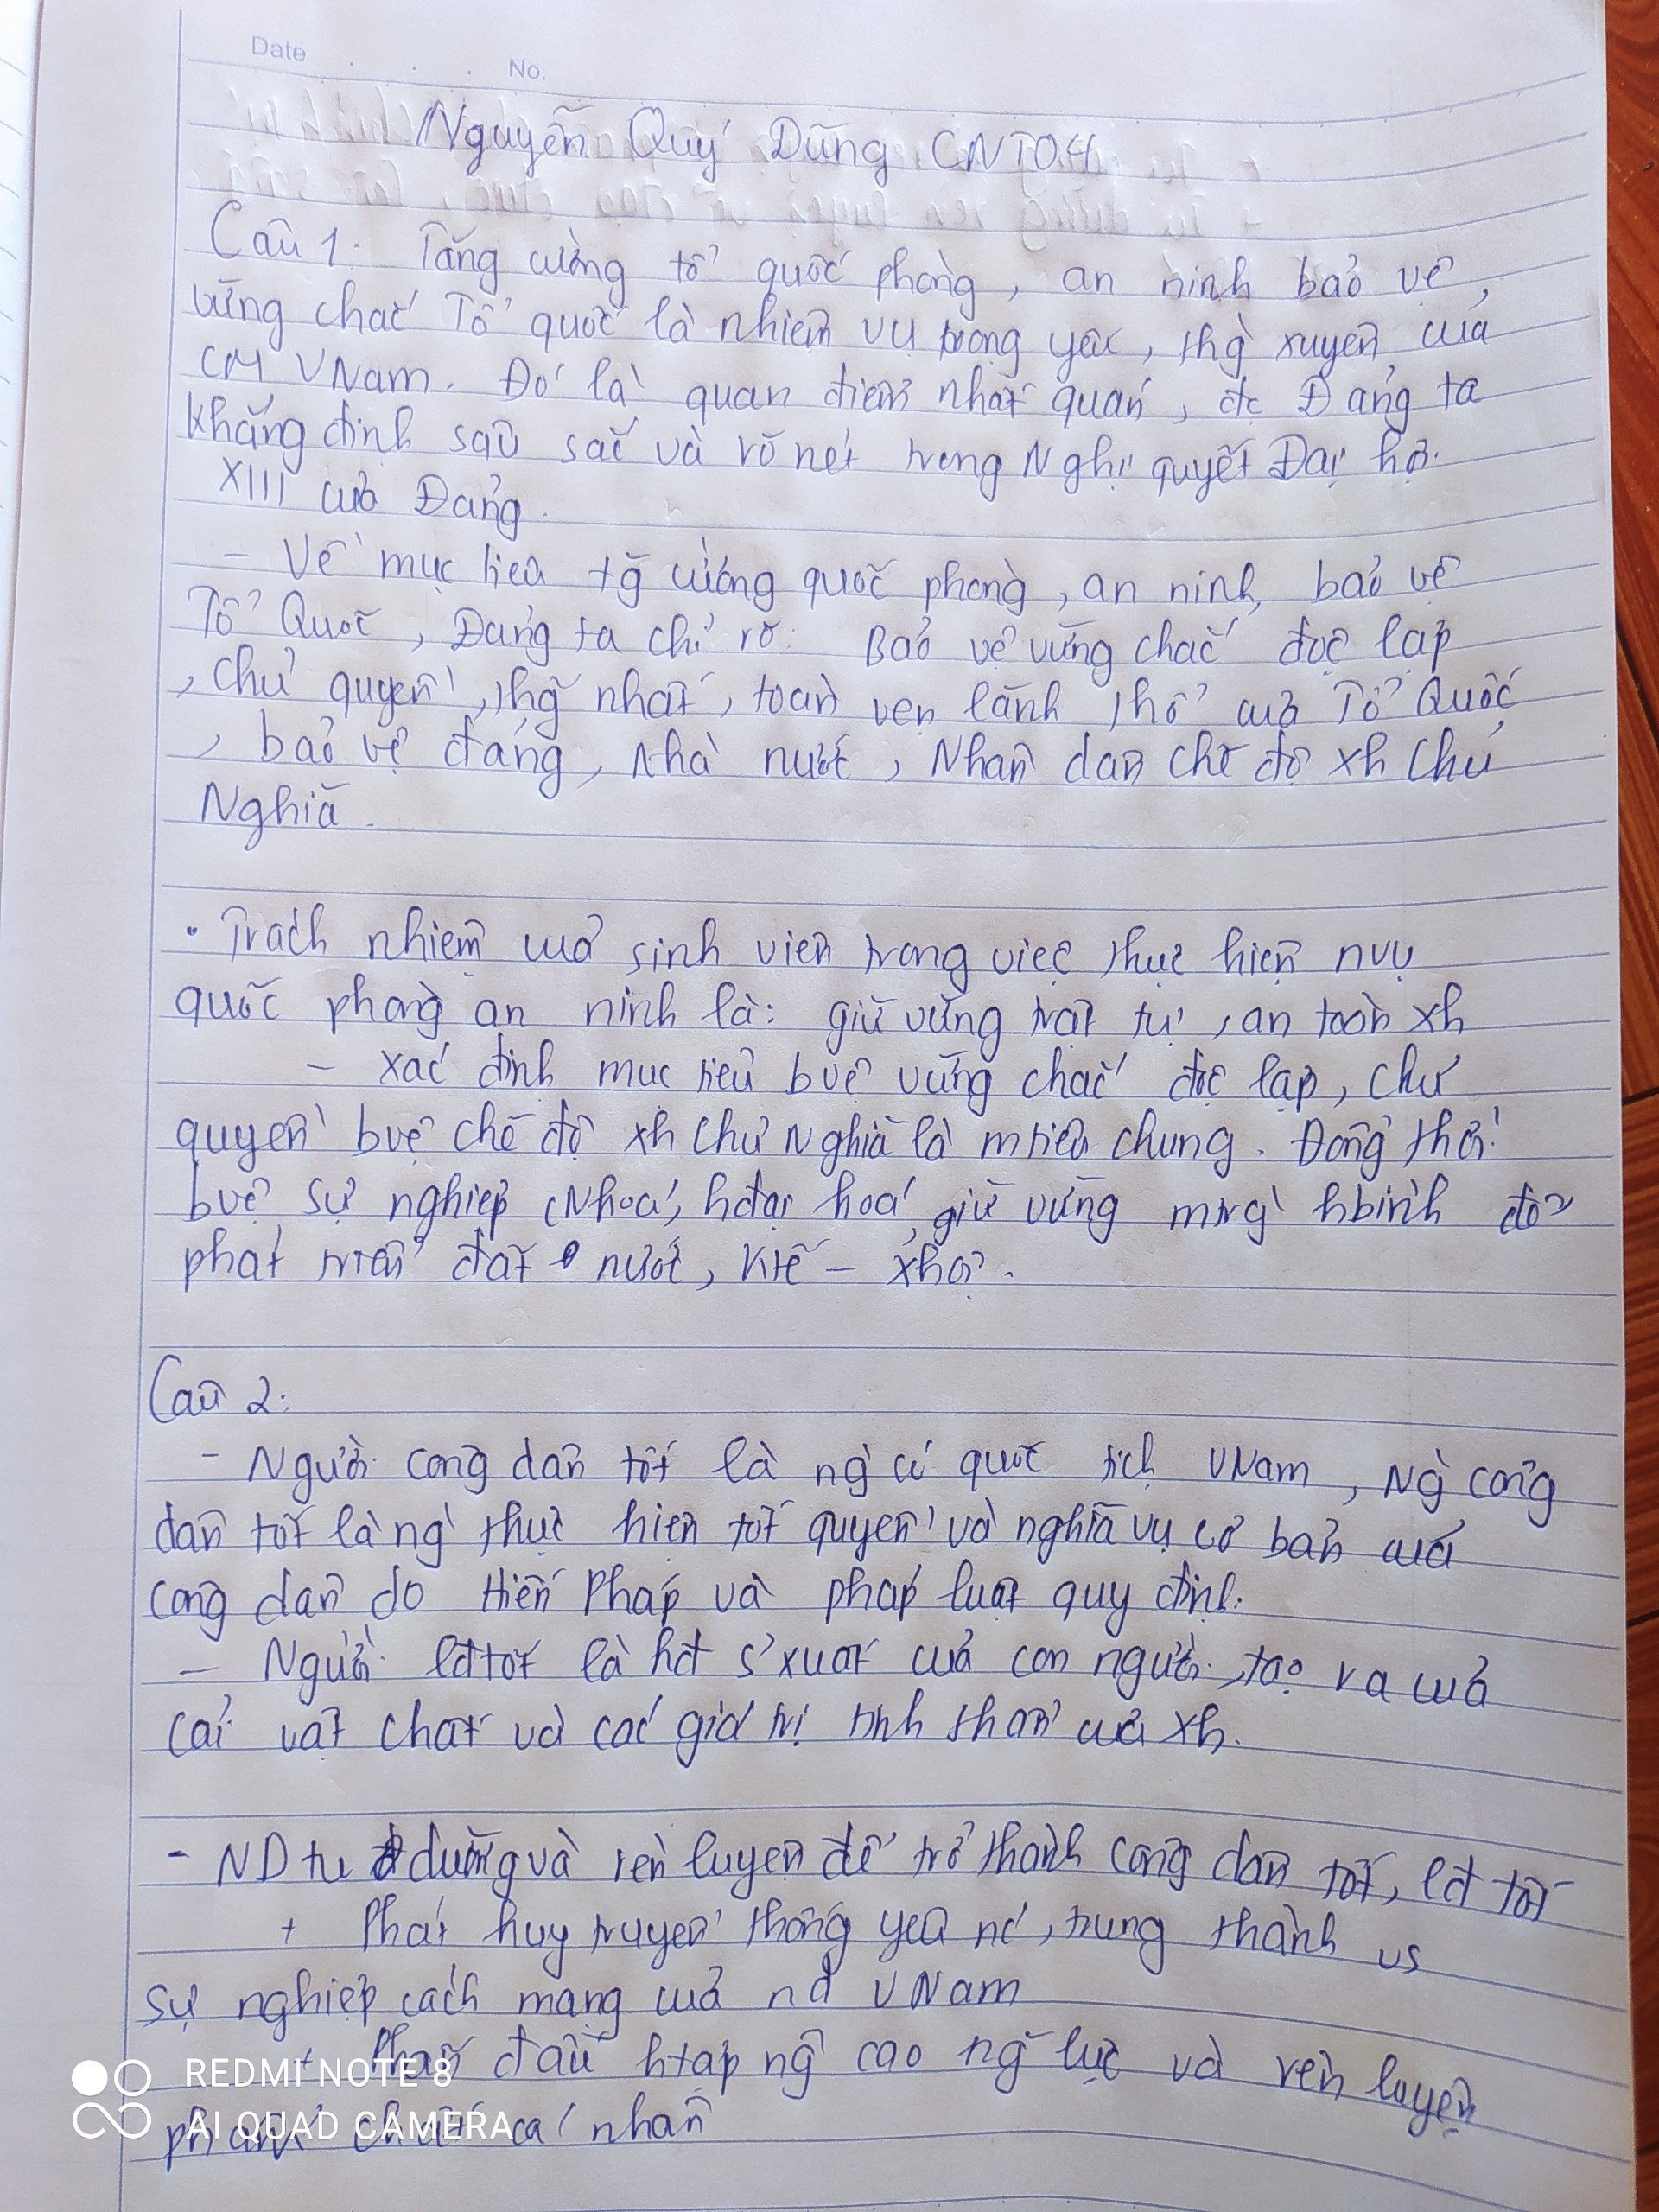 Date No.
Nguyễn Quý Dũng CNTO4
Câu 1. Tăng cường tổ quốc phòng, an ninh bảo vệ
vững chắc Tổ quốc là nhiệm vụ trọng yếu, thg xuyên của
CM VNam. Đó là quan điểm nhất quán, đc Đảng ta
khẳng định sâu sắc và rõ nét trong Nghị quyết Đại hội
XIII của Đảng.
- Về mục tiêu tg cường quốc phòng, an ninh, bảo vệ
Tổ Quốc, Đảng ta chỉ rõ: Bảo vệ vững chắc độc lập
, chủ quyền, thg nhất, toàn vẹn lãnh thổ của Tổ Quốc
, bảo vệ đảng, Nhà nước, Nhân dân chế độ xh Chủ
Nghĩa.
• Trách nhiệm của sinh viên trong việc thực hiện nvụ
quốc phòng an ninh là: giữ vững trật tự, an toàn xh
- xác định mục tiêu bvệ vững chắc độc lập, chủ
quyền bvệ chế độ xh chủ Nghĩa là mtiêu chung. Đồng thời
bvệ sự nghiệp CNhoá, hđại hoá, giữ vững mtrg hbình để
phát triển đất nước, Ktế - xhội.
Câu 2:
- Người công dân tốt là ng có quốc tịch VNam, Ng công
dân tốt là ng thực hiện tốt quyền và nghĩa vụ cơ bản của
công dân do Hiến Pháp và pháp luật quy định.
- Người lđ tốt là hđ s'xuất của con người, tạo ra của
cải vật chất và các giá trị tinh thần của xh.
- ND tu dưỡng và rèn luyện để trở thành công dân tốt, lđ tốt
+ Phát huy truyền thống yêu nc, trung thành vs
sự nghiệp cách mạng của nd VNam
+ Phấn đấu htập ng cao ng lực và rèn luyện
phẩm chất cá nhân
REDMI NOTE 8
AI QUAD CAMERA